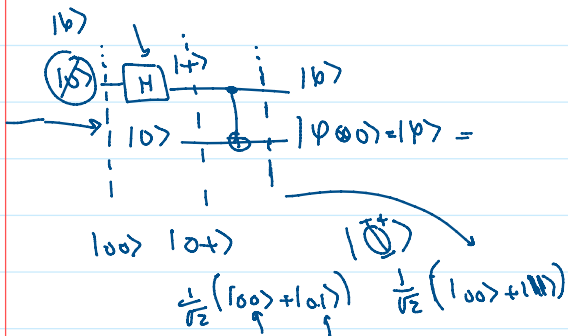 |b⟩
|0⟩ H |+⟩ |b⟩
|0⟩ |φ⊗0⟩=|φ⟩ =
|00⟩ |0+⟩ |Φ⁺⟩
1/√2 (|00⟩+|01⟩) 1/√2 (|00⟩+|11⟩)